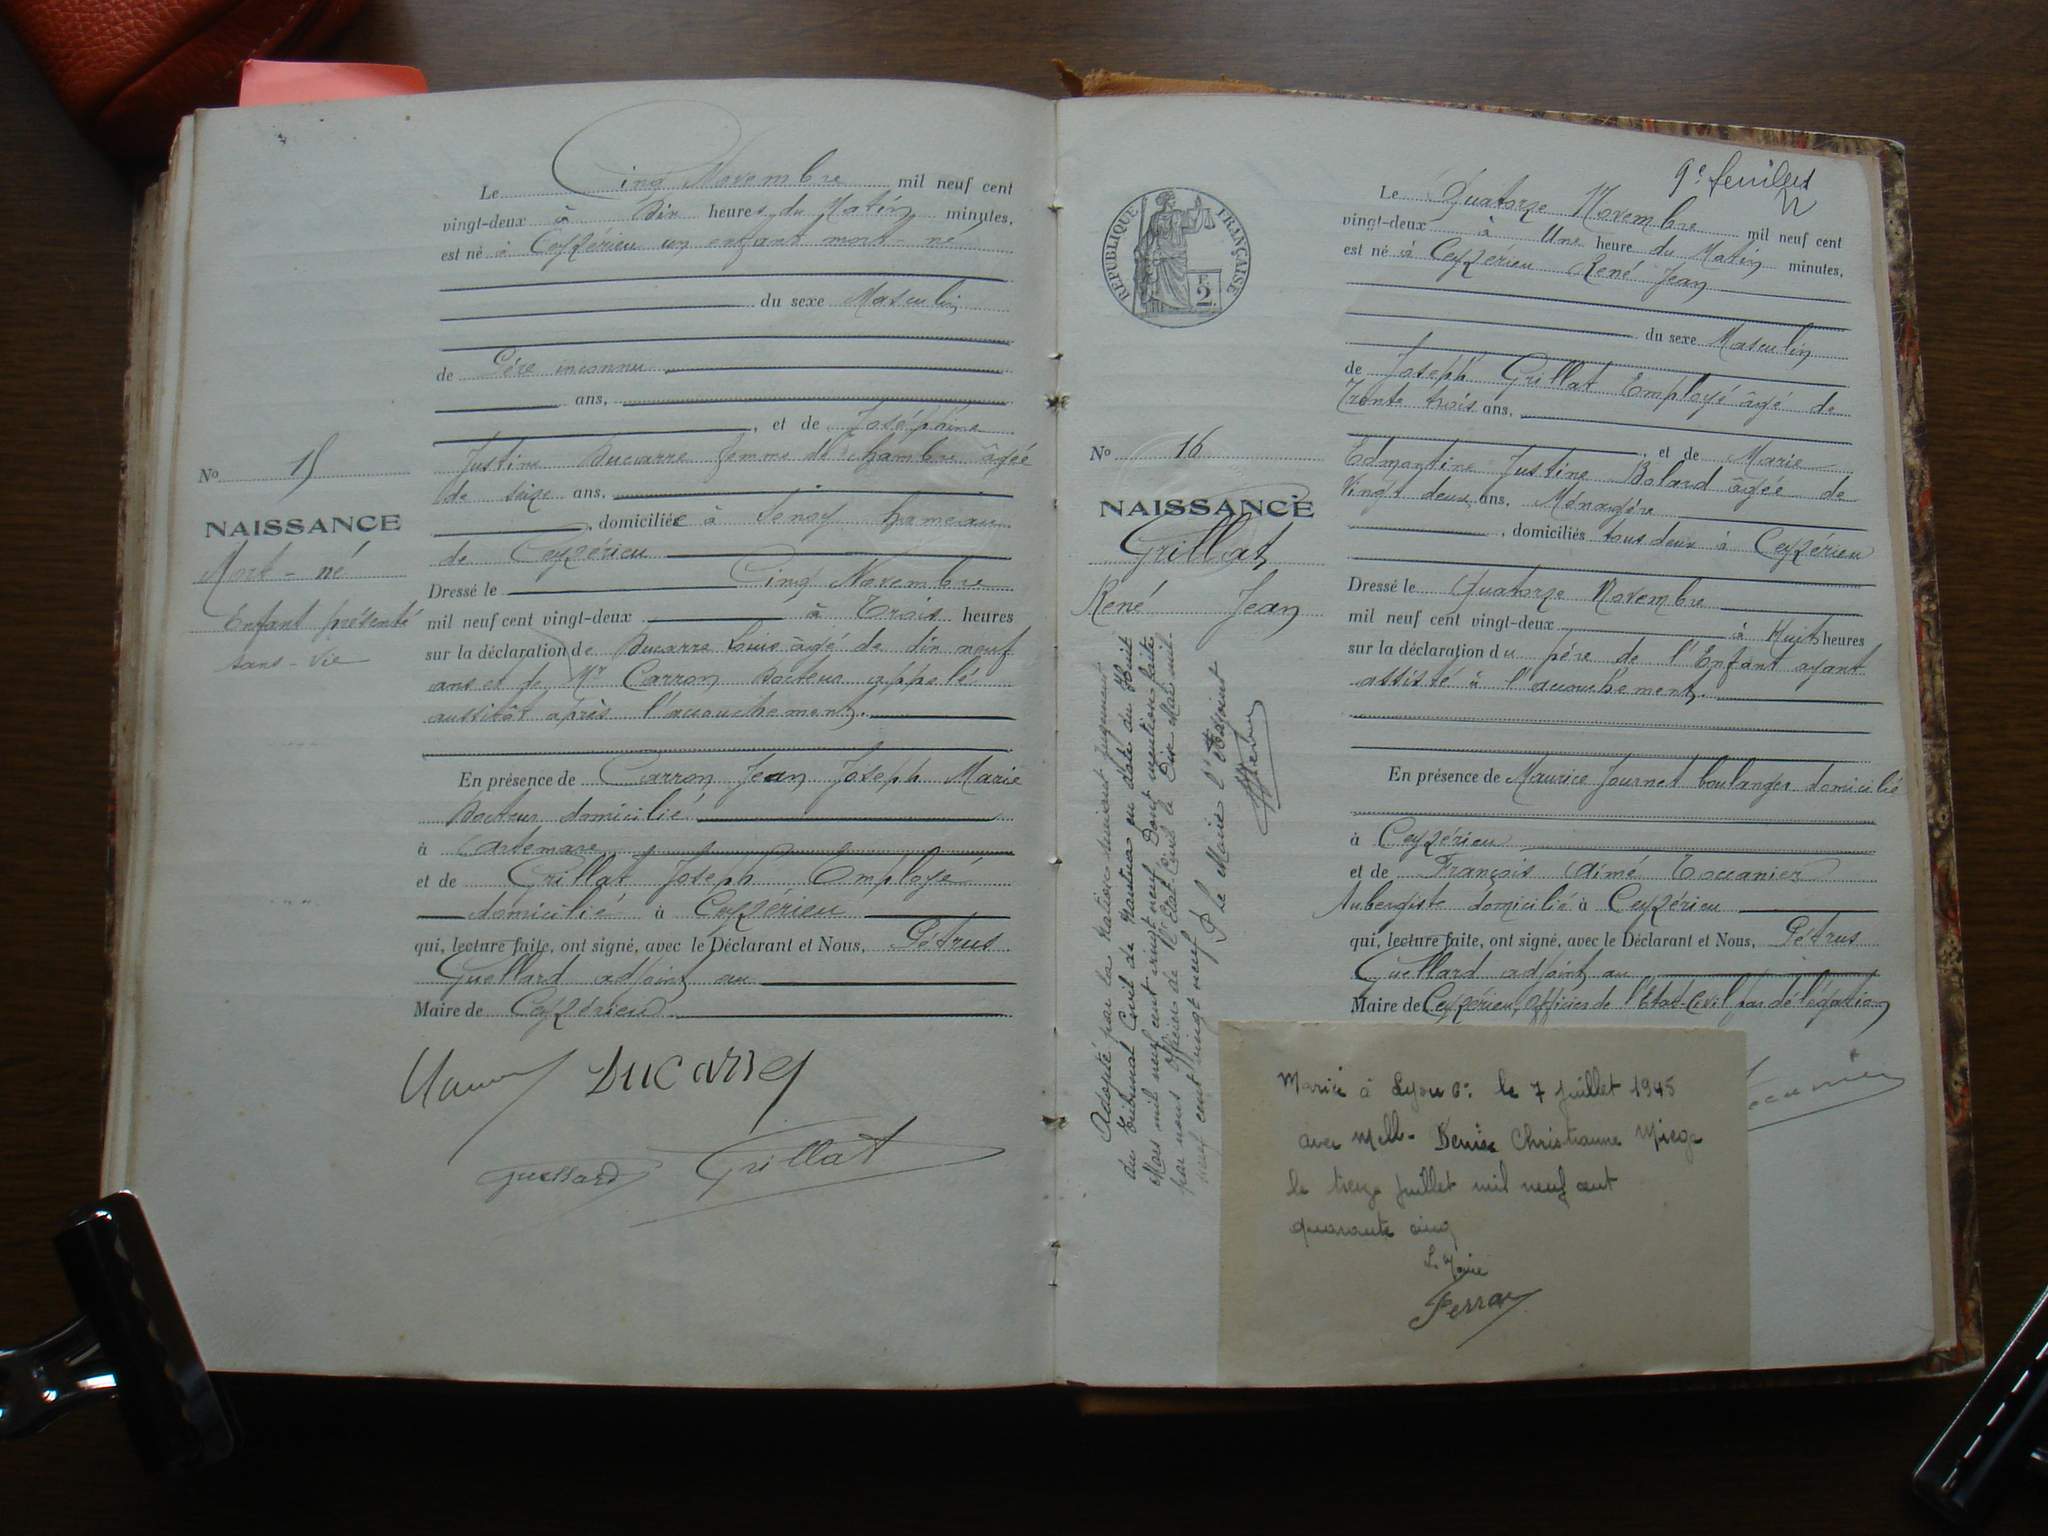 Le Cinq Novembre mil neuf cent
vingt-deux à dix heures du Matin minutes,
est né à Ceyzérieu un enfant mort-né
du sexe Masculin
de Père inconnu
ans,
, et de Joséphine
Justine Ducarre femme de chambre âgée
de seize ans,
, domiciliée à Senoy hameau
de Ceyzérieu
Dressé le Cinq Novembre
mil neuf cent vingt-deux à Trois heures
sur la déclaration de Ducarre Louis âgé de dix neuf
ans et de Mr Carron Docteur appelé
aussitôt après l'accouchement.
En présence de Carron Jean Joseph Marie
Docteur domicilié
à Artemare
et de Grillat Joseph Employé
domicilié à Ceyzérieu
qui, lecture faite, ont signé, avec le Déclarant et Nous, Pétrus
Guellard adjoint au
Maire de Ceyzérieu
No 15
NAISSANCE
Mort-né
Enfant présenté
sans-vie
Ducarre
Guellard
Grillat
9e feuillet
RÉPUBLIQUE FRANÇAISE
2
Le Quatorze Novembre mil neuf cent
vingt-deux à Une heure du Matin minutes,
est né à Ceyzérieu René Jean
du sexe Masculin
de Joseph Grillat Employé âgé de
Trente trois ans,
, et de Marie
Edmontine Justine Bolard âgée de
Vingt deux ans, Ménagère
, domiciliés tous deux à Ceyzérieu
Dressé le Quatorze Novembre
mil neuf cent vingt-deux à Huit heures
sur la déclaration du père de l'Enfant ayant
assisté à l'accouchement.
En présence de Maurice Journet boulanger domicilié
à Ceyzérieu
et de François Aimé Toccanier
Aubergiste domicilié à Ceyzérieu
qui, lecture faite, ont signé, avec le Déclarant et Nous, Pétrus
Guellard adjoint au
Maire de Ceyzérieu, Officier de l'Etat-Civil par délégation
No 16
NAISSANCE
Grillat
René Jean
Adopté par la Nation suivant jugement
du Tribunal Civil de Nantua en date du Huit
Mars mil neuf cent vingt neuf. Dont mention faite
par nous Officier de l'Etat Civil le Dix Mai mil
neuf cent vingt neuf
P le Maire l'Adjoint
Marié à Lyon 6e le 7 juillet 1945
avec Melle Denise Christianne Miege
le treize juillet mil neuf cent
quarante cinq
Le Maire
Perra